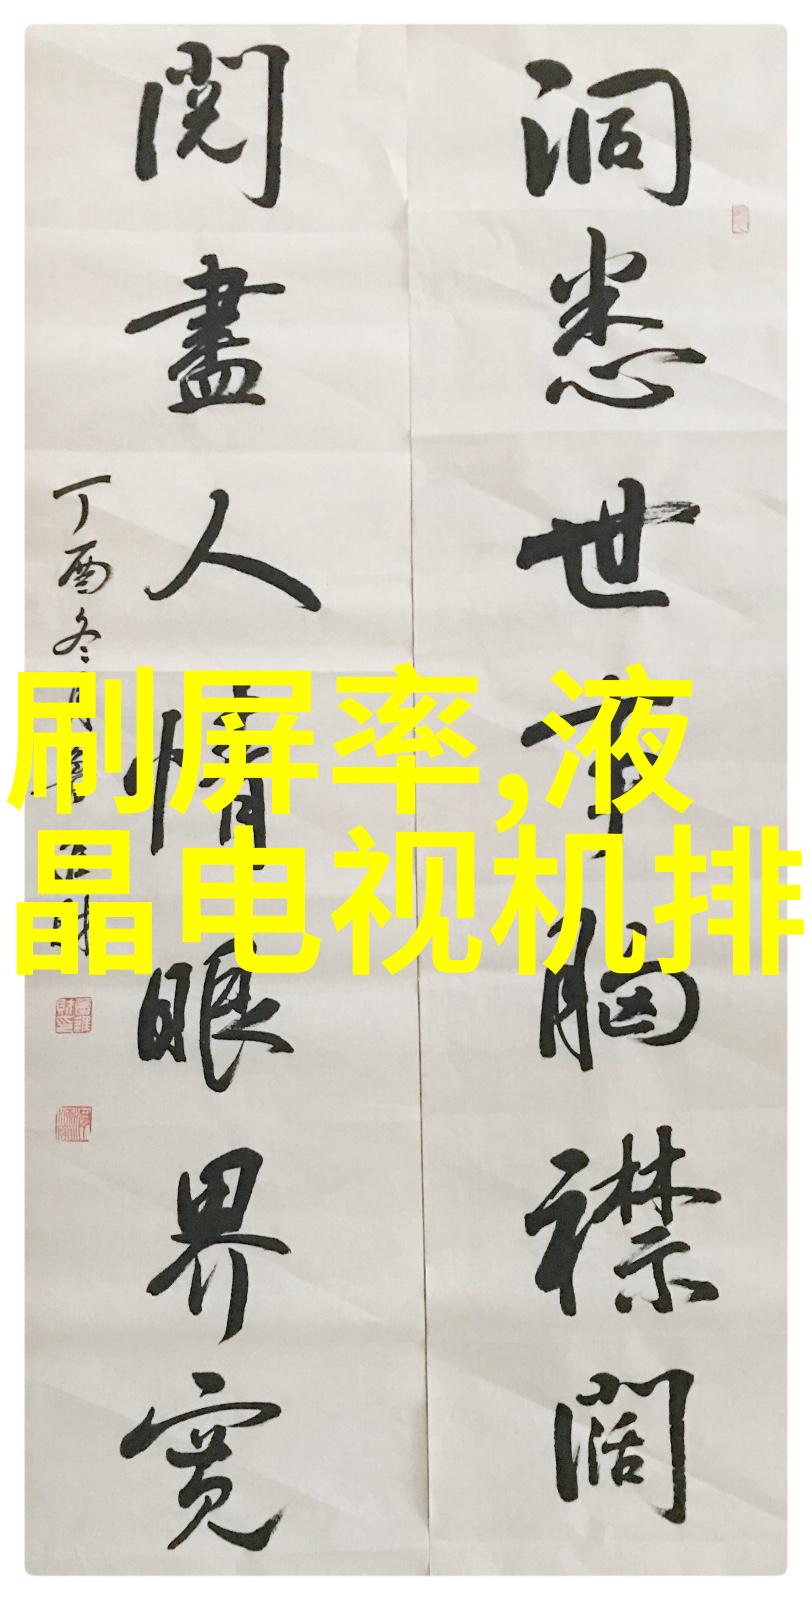 洞悉世事胸襟阔
閲盡人情眼界寬
丁酉冬月
刷屏率,液
晶电视机排